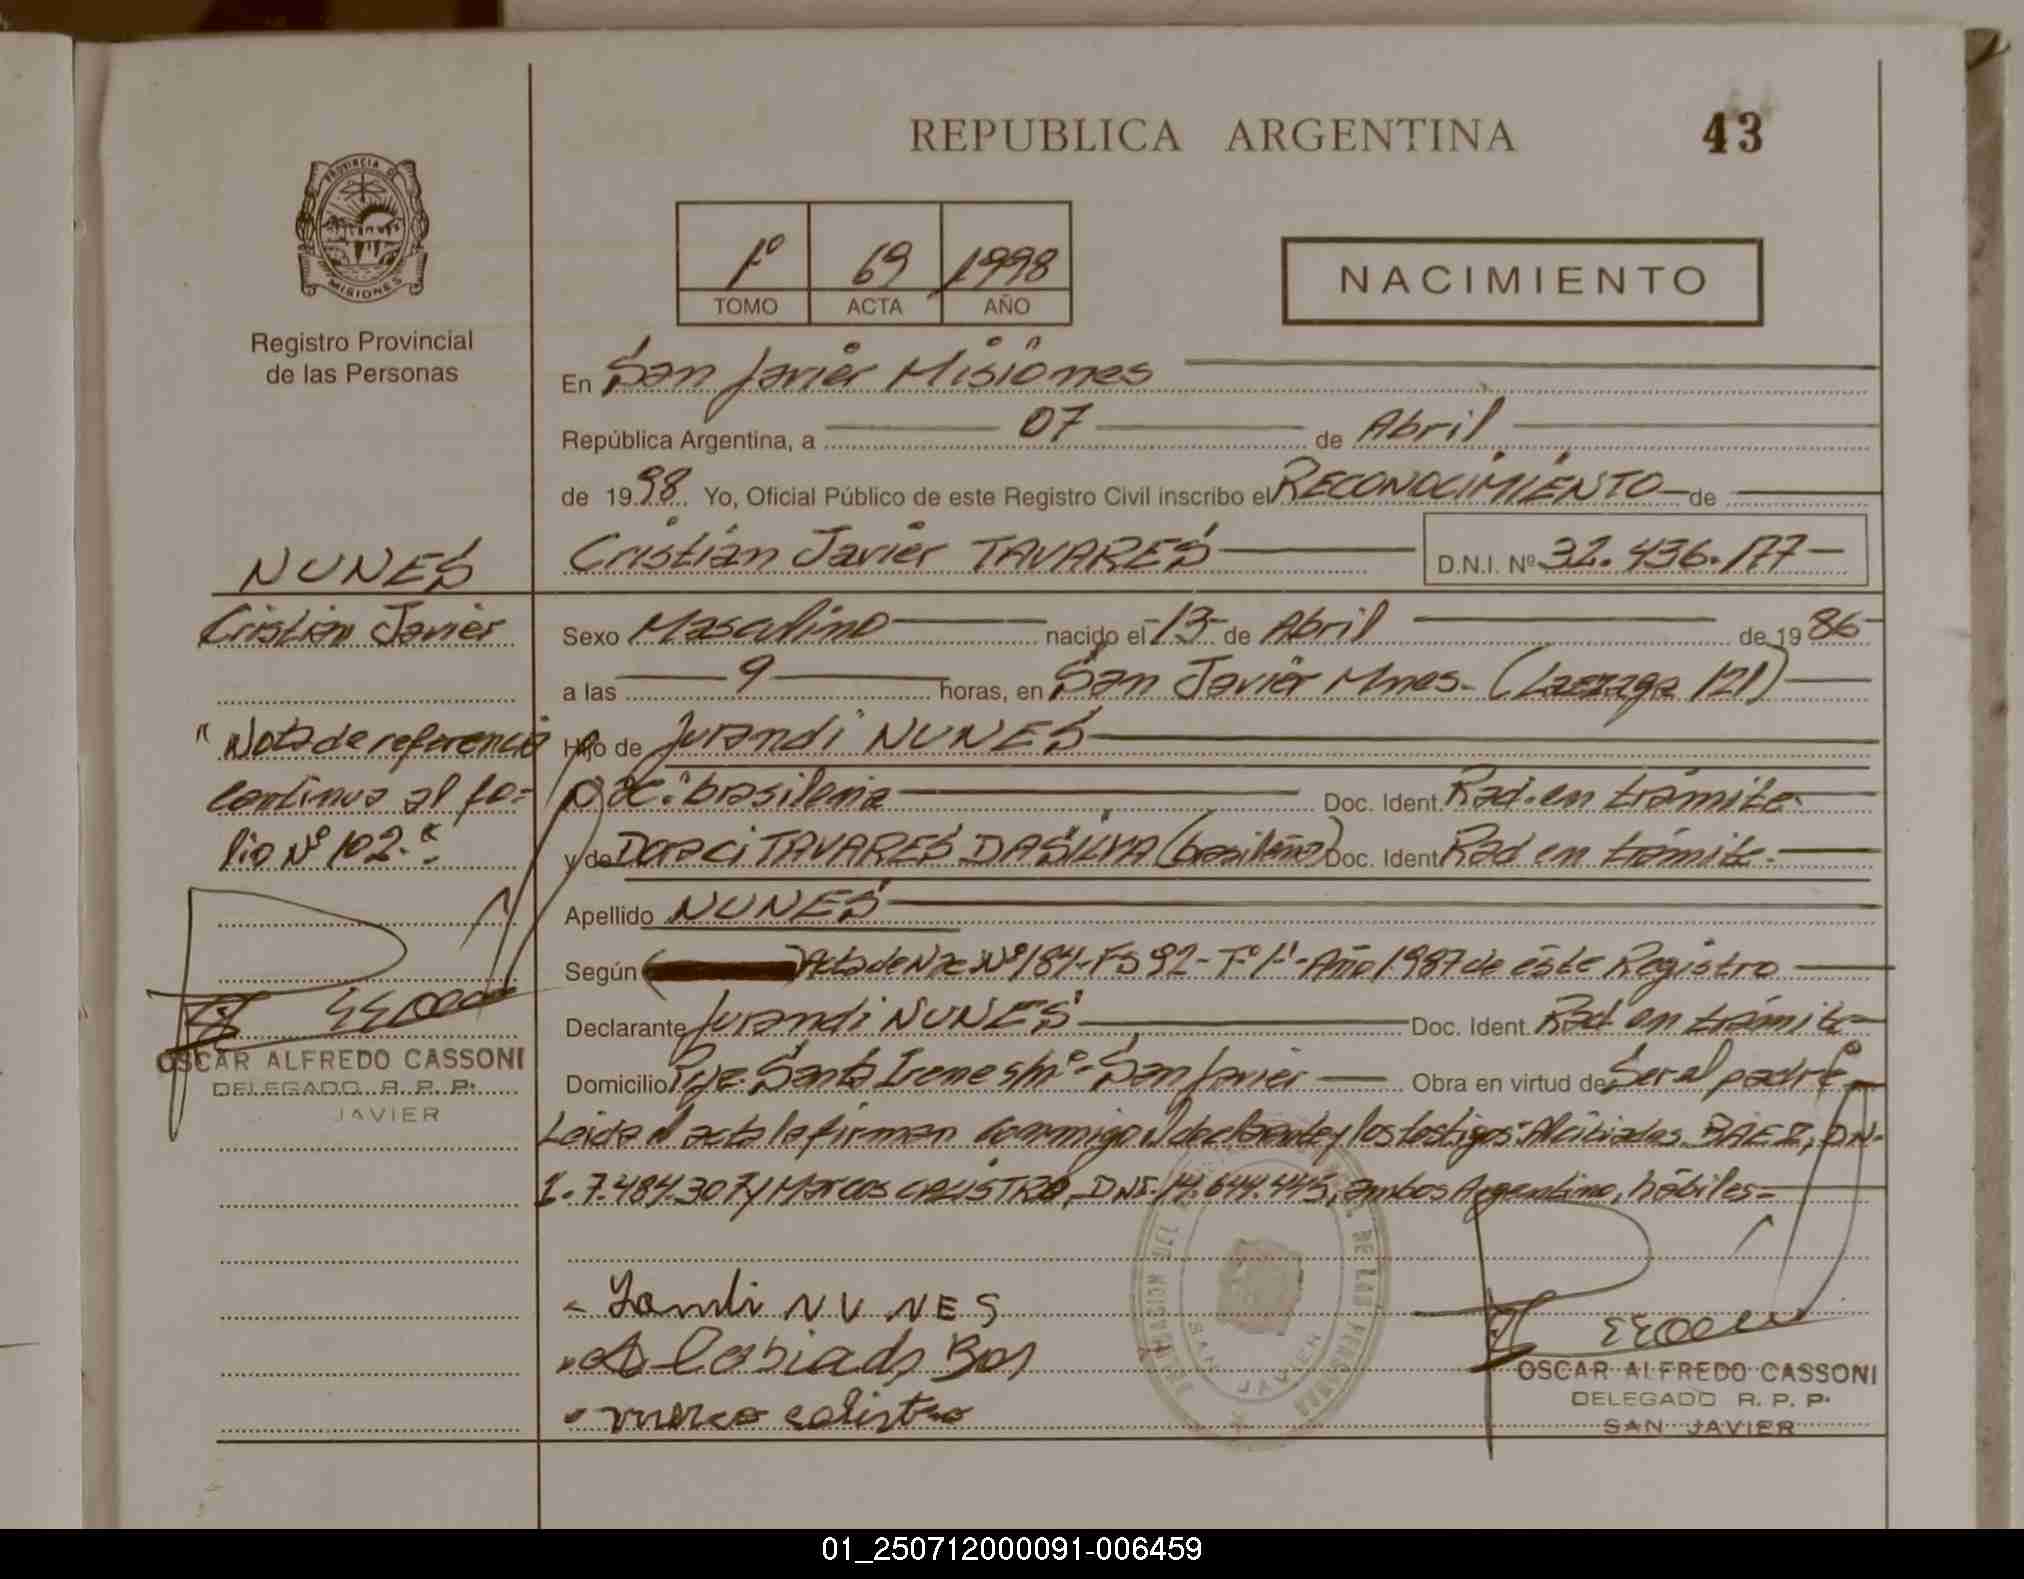 REPUBLICA ARGENTINA
43
PROVINCIA DE
MISIONES
Registro Provincial
de las Personas
1º 69 1998
TOMO ACTA AÑO
NACIMIENTO
En San Javier Misiones
República Argentina, a 07 de Abril
de 1998. Yo, Oficial Público de este Registro Civil inscribo el RECONOCIMIENTO de
Cristian Javier TAVARES D.N.I. Nº 32.436.177
NUNES
Cristian Javier
Sexo Masculino nacido el 13 de Abril de 1986
a las 9 horas, en San Javier Mnes. ( 121)
Hijo de Jurandi NUNES
Nac. brasileña Doc. Ident. Rad. en trámite
y de Darci TAVARES DA SILVA (brasileña) Doc. Ident. Rad en trámite.
Apellido NUNES
Según Acta de Nac Nº 184-Fs 92-Tº 1º-Año 1987 de éste Registro
Declarante Jurandi NUNES Doc. Ident. Rad en trámite
Domicilio Pje. Santa Irene s/nº - San Javier Obra en virtud de Ser el padre
Leida el acta la firman conmigo el declarante y los testigos: Alcibiades BAEZ, DN-
I. 7.484.307 y Marcos CALISTRO, DNI. 14.644.445, ambos Argentino, hábiles
"Nota de referencia
continua al fo-
lio Nº 102."
OSCAR ALFREDO CASSONI
DELEGADO R. P. P.
JAVIER
NUNES
calistro
DELEGACION DEL REGISTRO PROVINCIAL DE LAS PERSONAS
SAN JAVIER
OSCAR ALFREDO CASSONI
DELEGADO R. P. P.
SAN JAVIER
01_250712000091-006459